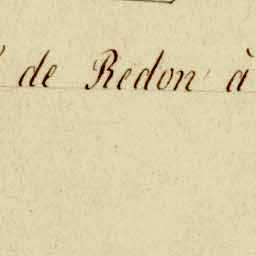 de Redon à